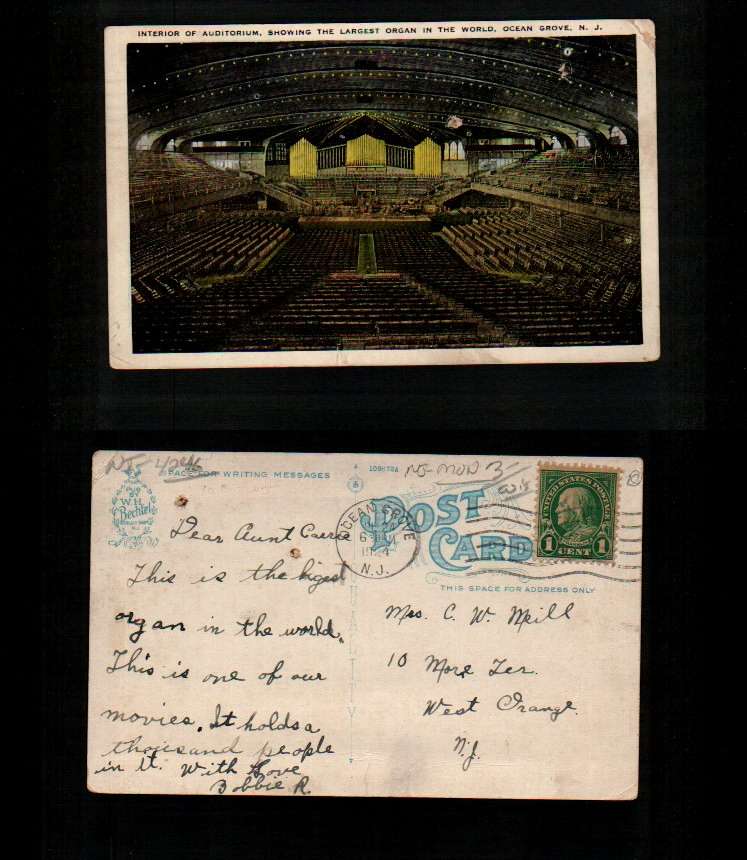 INTERIOR OF AUDITORIUM, SHOWING THE LARGEST ORGAN IN THE WORLD, OCEAN GROVE, N. J.
SPACE FOR WRITING MESSAGES
PUB BY
W.H.
Bechtel
N.J.
POST
CARD
OCEAN GROVE
N.J.
UNITED STATES POSTAGE
1 CENT 1
THIS SPACE FOR ADDRESS ONLY
Dear Aunt Carrie
This is the bigest
organ in the world.
This is one of our
movies. It holds a
thousand people
in it. With Love
Bobbie R.
Mrs. C. W. Meill
10 More Ter.
West Orange
N.J.